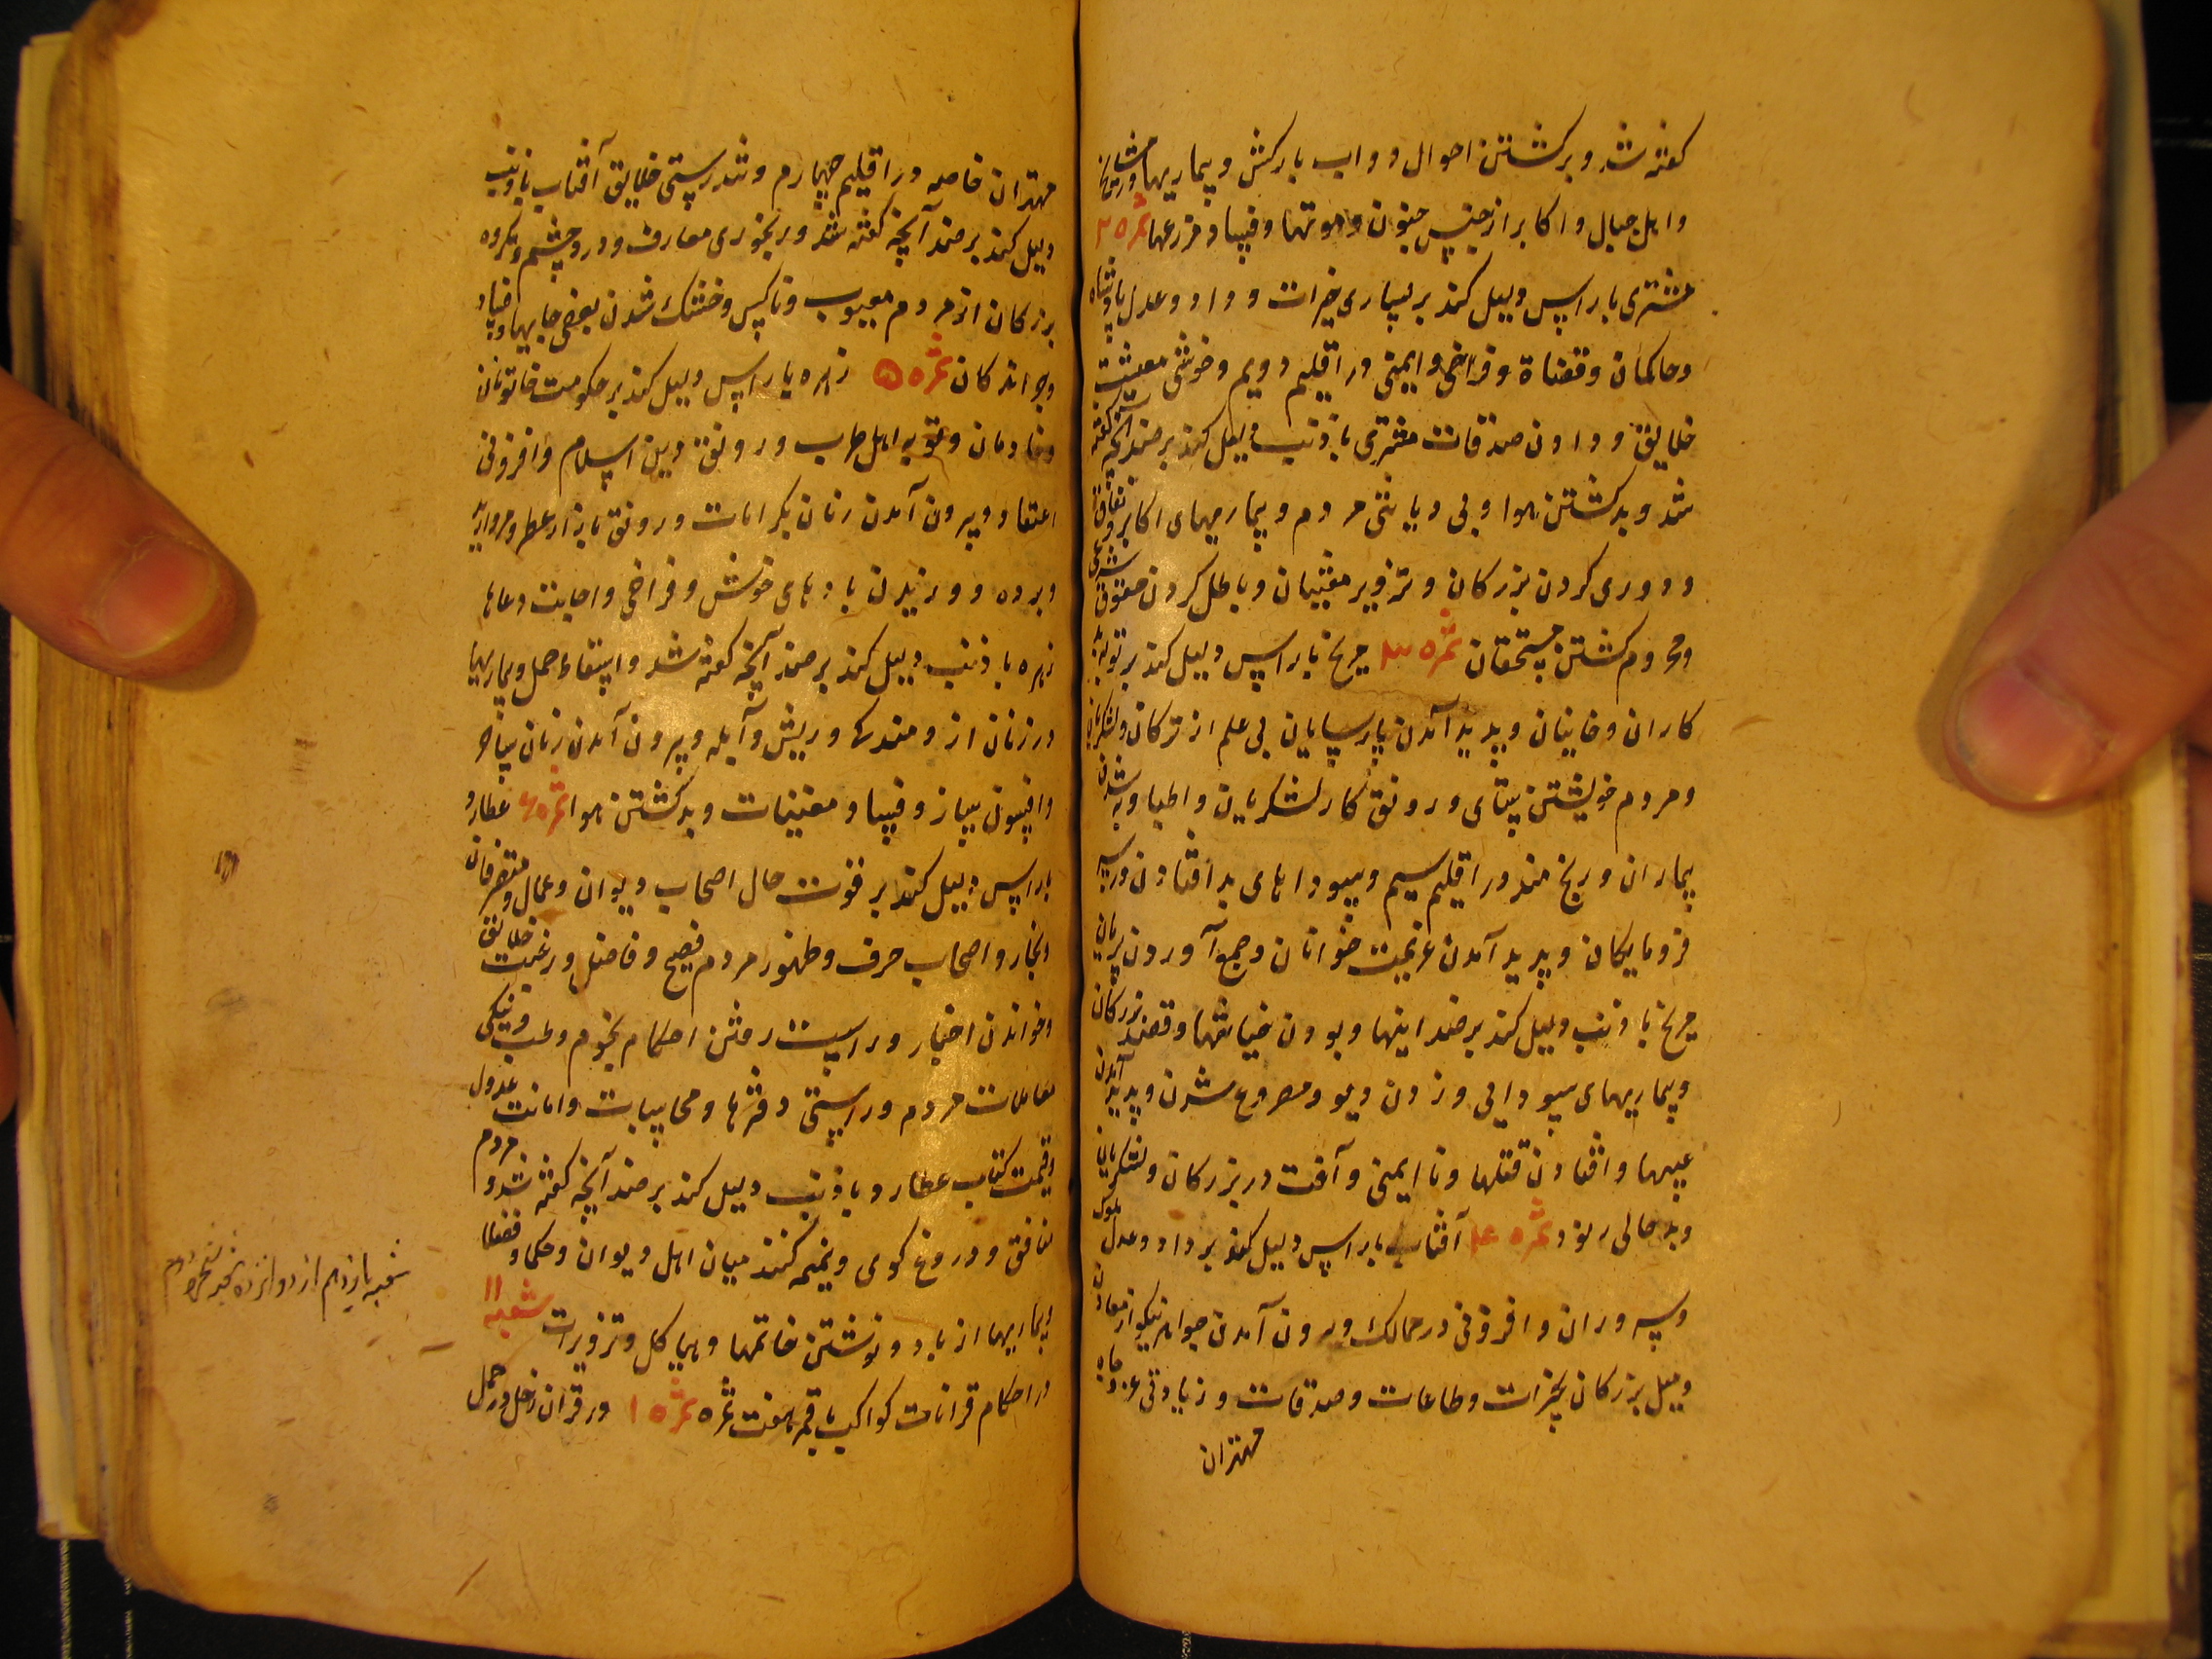 کفته شد و برکشتن احوال دواب بارکش و بیماریها در مشایخ
و اهل جبال و اکابر از جنس جنون و موتها و فساد مزرعها ثمره ۲
مشتری باراس دلیل کند بر بسیاری خیرات و داد و عدل پادشاه
و حاکمان و قضاة و فراخی و ایمنی در اقلیم دویم و خوشی معیشت
خلایق و دادن صدقات مشتری با ذنب دلیل کند بر ضد آنچه کفته
شد و بد کشتن هوا و بی دیانتی مردم و بیماریهای اکابر و نفاق
و دوری کردن بزرکان و تزویر مفتیان و باطل کردن حقوق شرعی
و محروم کشتن مستحقان ثمره ۳ مریخ باراس دلیل کند بر توبه بد
کاران و خاینان و پدید آمدن پارسایان بی علم از ترکان و لشکریان
و مردم خویشتن ستای و رونق کار لشکریان و اطبا و به شدن
بیماران و رنج مند در اقلیم سیم و سوداهای بد افتادن در سر
فرومایکان و پدید آمدن عزیمت خوانان و جمع آوردن پریان
مریخ با ذنب دلیل کند بر ضد اینها و بودن خیانتها و قصد بزرکان
و بیماریهای سودایی و زدن دیو و مصروع شدن و پدید آمدن
عیبها و افتادن قتلها و نا ایمنی و آفت در بزرکان و لشکریان
و بد حالی رنود ثمره ۴ آفتاب باراس دلیل کند بر داد و عدل ملوک
و سروران و افزونی در ممالک و برون آمدن جواهر نیکو از معادن
و میل بزرکان بخیرات و طاعات و صدقات و زیادتی عز و جاه
مهتران
مهتران خاصه در اقلیم چهارم و تندرستی خلایق آفتاب با ذنب
دلیل کند بر ضد آنچه کفته شد و رنجوری معارف و درد چشم و مکروه
بزرکان از مردم معیوب و ناکس و خشک شدن بعضی جایها و فساد
زهره باراس دلیل کند بر حکومت خاتونان ثمره ۵
و خادمان و توبه اهل طرب و رونق دین اسلام و افزونی
اعتقاد و بیرون آمدن زنان بکرامات و رونق بازار عطر و مروارید
و برده و وزیدن بادهای خوش و فراخی و اجابت دعاها
زهره با ذنب دلیل کند بر ضد آنچه کفته شد و اسقاط حمل و بیماریها
در زنان از و ریش و آبله و بیرون آمدن زنان ساحر
و افسون ساز و فساد مغنیات و بد کشتن هوا ثمره ۶ عطارد
باراس دلیل کند بر قوت حال اصحاب دیوان و عمال و متصرفان
و تجار و اصحاب حرف و ظهور مردم فصیح و فاضل و رغبت خلایق
و خواندن اخبار و راست رفتن احکام نجوم و طب و نیکی
معاملات مردم و راستی دفترها و محاسبات و امانت عدول
و قیمت کتاب عطارد با ذنب دلیل کند بر ضد آنچه کفته شد و مردم
منافق و دروغ کوی و نمیمه کنند میان اهل دیوان و حکما و فضلا
و بیماریها از باد و نوشتن خاتمها و هیاکل و تزویرات شعبه ۱۱
در احکام قرانات کواکب با قمر هفت ثمره ثمره ۱ در قران زحل در حمل
شعبه یازدهم از دوازده شعبه شجره دوم